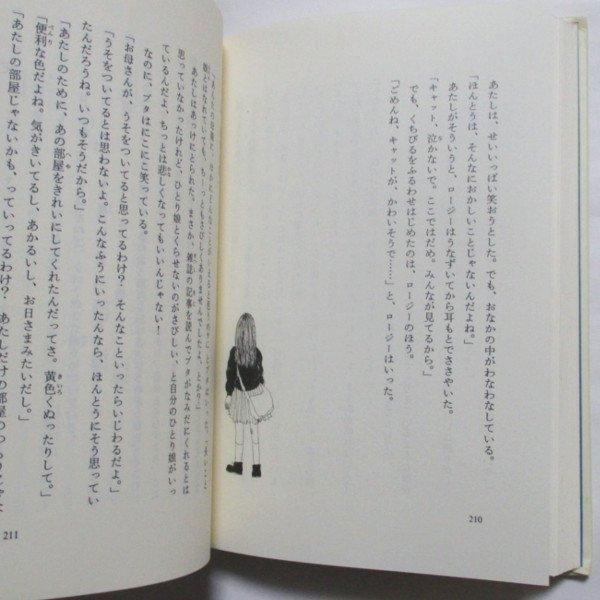 あたしは、せいいっぱい笑おうとした。でも、おなかの中がわなわなしている。
「ほんとうは、そんなにおかしいことじゃないんだよね。」
あたしがそういうと、ロージーはうなずいてから耳もとでささやいた。
「キャット、泣かないで。ここではだめ。みんなが見てるから。」
でも、くちびるをふるわせはじめたのは、ロージーのほう。
「ごめんね、キャットが、かわいそうで……」と、ロージーはいった。
210
娘とはなれていても、ちーっともさびしくありませんでしたよ、とか?」
あたしはあっけにとられた。まさか、雑誌の記事を読んでブタがなみだにくれるとは
思っていなかったけれど、ひとり娘とくらせないのがさびしい、と自分のひとり娘がいっ
ているんだよ、ちっとは悲しくなってもいいんじゃない!
なのに、ブタはにこにこ笑っている。
「お母さんが、うそをついてると思ってるわけ? そんなこといったらいじわるだよ。」
「うそをついてるとは思わないよ。こんなふうにいったんなら、ほんとうにそう思ってい
たんだろうね。いつもそうだから。」
「あたしのために、あの部屋をきれいにしてくれたんだってさ。黄色くぬったりして。」
「便利な色だよね。気がきいてるし、あかるいし、お日さまみたいだし。」
「あたしの部屋じゃないかも、っていってるわけ? あたしだけの部屋の
211